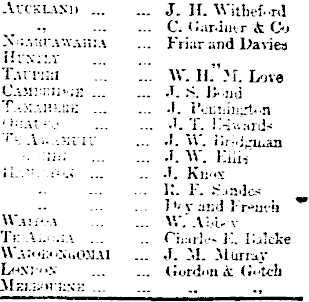 AUCKLAND ... ... J. H. Witheford
„ ... ... C. Gardner & Co
NGARUAWAHIA ... Friar and Davies
HUNTLY ... ... „
TAUPIRI ... W. H. M. Love
CAMBRIDGE ... ... J. S. Bond
TAMAHERE ... ... J. Pennington
OHAUPO ... ... J. T. Edwards
TE AWAMUTU ... J. W. Bridgman
... ... J. W. Ellis
HAMILTON ... ... J. Knox
„ ... ... R. F. Sandes
„ ... ... Dey and French
... ... W. Abbey
TE AROHA ... .. Charles E. Balcke
WAIORONGOMAI ... J. M. Murray
LONDON ... ... Gordon & Gotch
MELBOURNE ... ... „ „